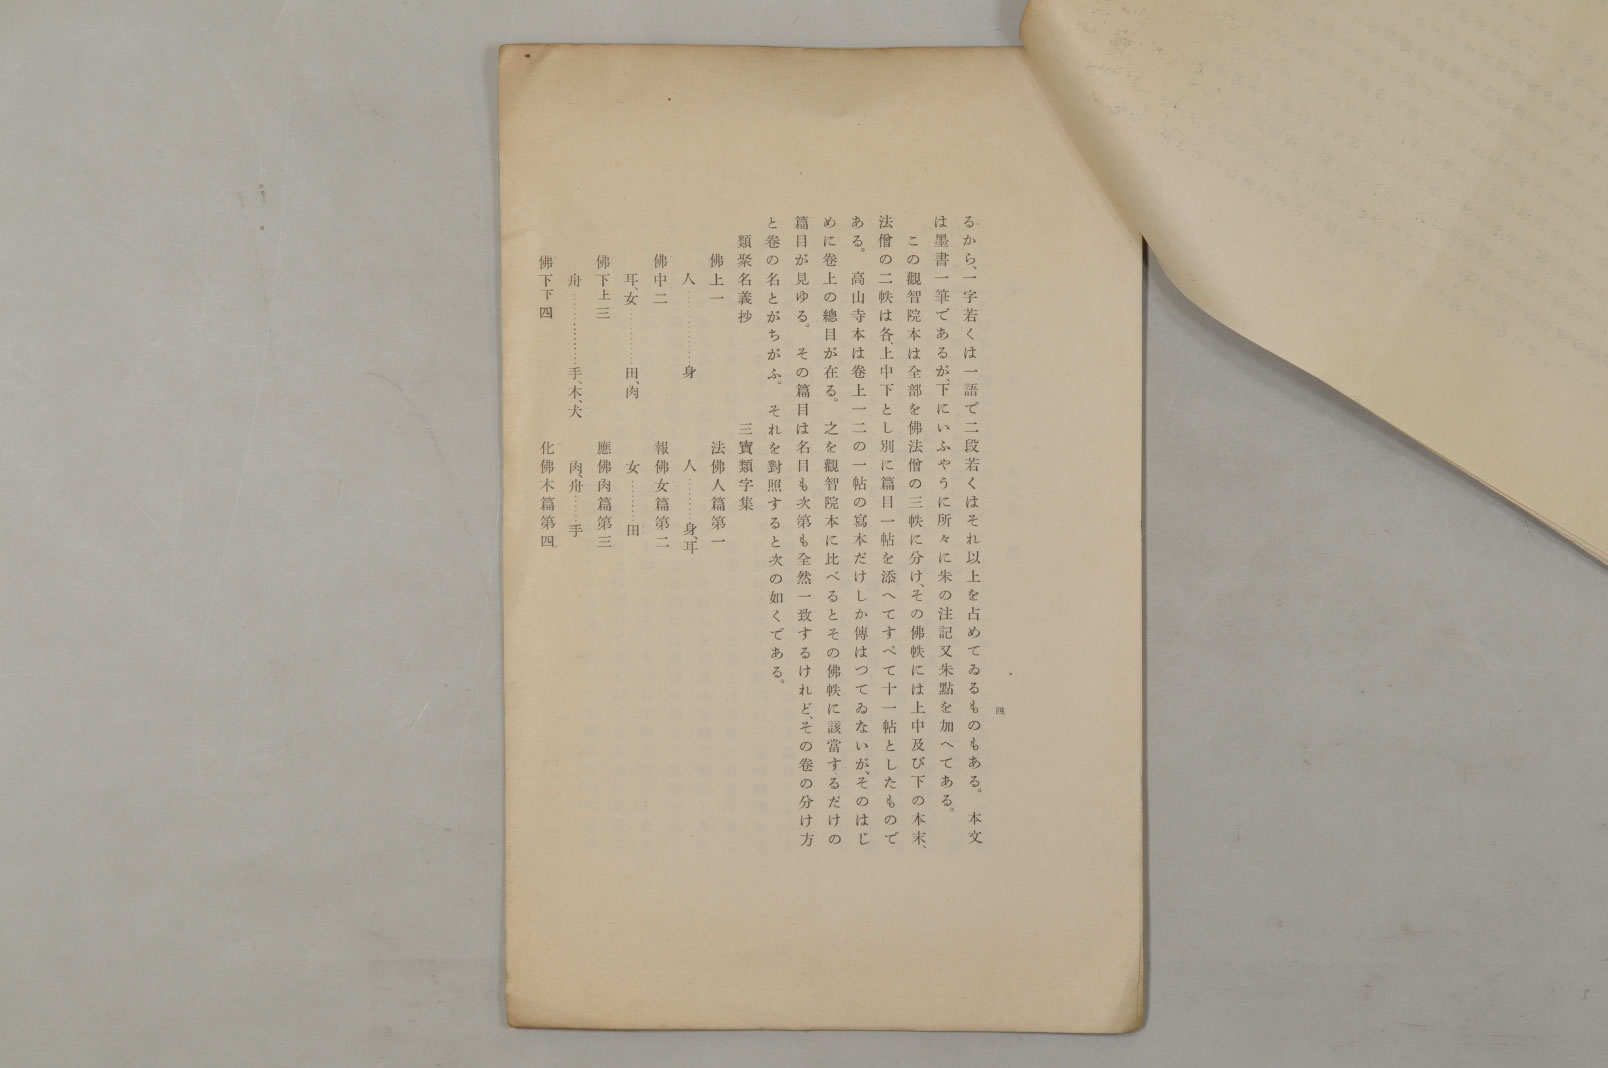 四
るから、一字若くは一語で二段若くはそれ以上を占めてゐるものもある。　本文
は墨書一筆であるが、下にいふやうに所々に朱の注記又朱點を加へてある。
この觀智院本は全部を佛法僧の三帙に分け、その佛帙には上中及び下の本末、
法僧の二帙は各、上中下とし別に篇目一帖を添へてすべて十一帖としたもので
ある。　高山寺本は卷上一二の一帖の寫本だけしか傳はつてゐないが、そのはじ
めに卷上の總目が在る。　之を觀智院本に比べるとその佛帙に該當するだけの
篇目が見ゆる。　その篇目は名目も次第も全然一致するけれど、その卷の分け方
と卷の名とがちがふ。　それを對照すると次の如くである。
類聚名義抄　三寶類字集
佛上一　法佛人篇第一
人…………身　人………身、耳
佛中二　報佛女篇第二
耳、女…………田、肉　女………田
佛下上三　應佛肉篇第三
舟……………手、木、犬　肉、舟……手
佛下下四　化佛木篇第四